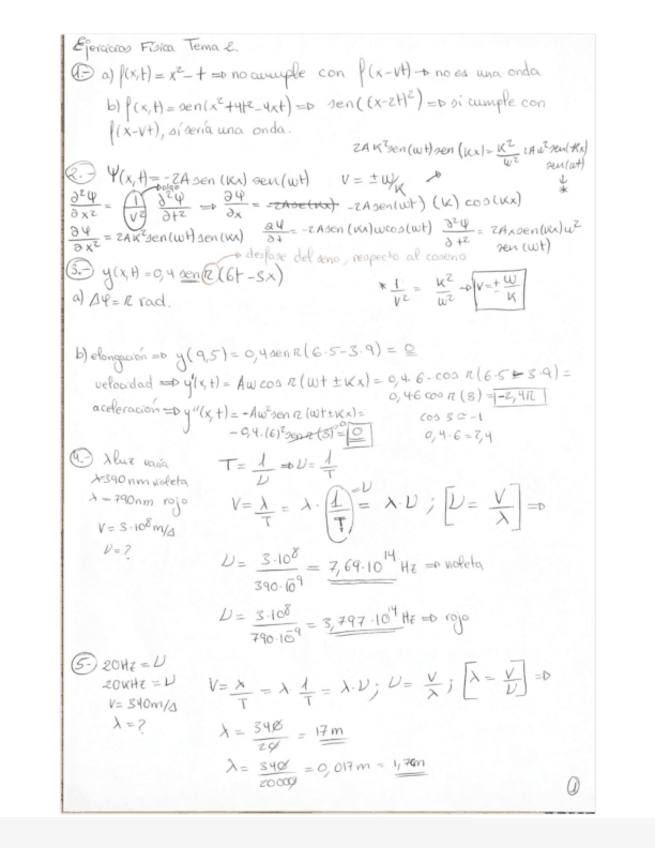 Ejercicios Física Tema 2.
1.- a) f(x,t) = x² - t ⇒ no cumple con f(x-vt) → no es una onda
b) f(x,t) = sen(x²+4t²-4xt) ⇒ sen((x-2t)²) ⇒ si cumple con
f(x-vt), sí sería una onda.
2AK² sen(wt) sen(Kx) = K²/w² 2Aw² sen(Kx) sen(wt)
2.- Ψ(x,t) = -2A sen(Kx) sen(wt) V = ± w/K
∂²Ψ/∂x² = 1/V² ∂²Ψ/∂t² ⇒ ∂Ψ/∂x = -2A sen(wt) (K) cos(Kx)
∂Ψ/∂x² = 2AK² sen(wt) sen(Kx) ∂Ψ/∂t = -2A sen(Kx) w cos(wt) ∂²Ψ/∂t² = 2A sen(Kx) w² sen(wt)
desfase del seno, respecto al coseno
3.- y(x,t) = 0,4 sen π(6t - 3x)
* 1/V² = K²/w² → V = ± w/K
a) Δφ = π rad.
b) elongación ⇒ y(9,5) = 0,4 sen π(6·5-3·9) = 0
velocidad ⇒ y'(x,t) = Aw cos π(wt ± Kx) = 0,4·6·cos π(6·5-3·9) =
0,46 cos π(3) = -2,4π
aceleración ⇒ y''(x,t) = -Aw² sen π(wt±Kx) =
cos 3π = -1
-0,4·(6)² sen π(3) = 0
0,4·6 = 2,4
4.- λ luz varía
T = 1/ν ⇒ ν = 1/T
λ = 390 nm violeta
λ = 790nm rojo
V = λ/T = λ · 1/T = λ·ν ; [ν = V/λ] ⇒
V = 3·10⁸ m/s
ν = ?
ν = 3·10⁸/390·10⁻⁹ = 7,69·10¹⁴ Hz ⇒ violeta
ν = 3·10⁸/790·10⁻⁹ = 3,797·10¹⁴ Hz ⇒ rojo
5- 20Hz = ν
20KHz = ν
V = λ/T = λ · 1/T = λ·ν ; ν = V/λ ; [λ = V/ν] ⇒
V = 340m/s
λ = ?
λ = 340/20 = 17m
λ = 340/20000 = 0,017m =
1